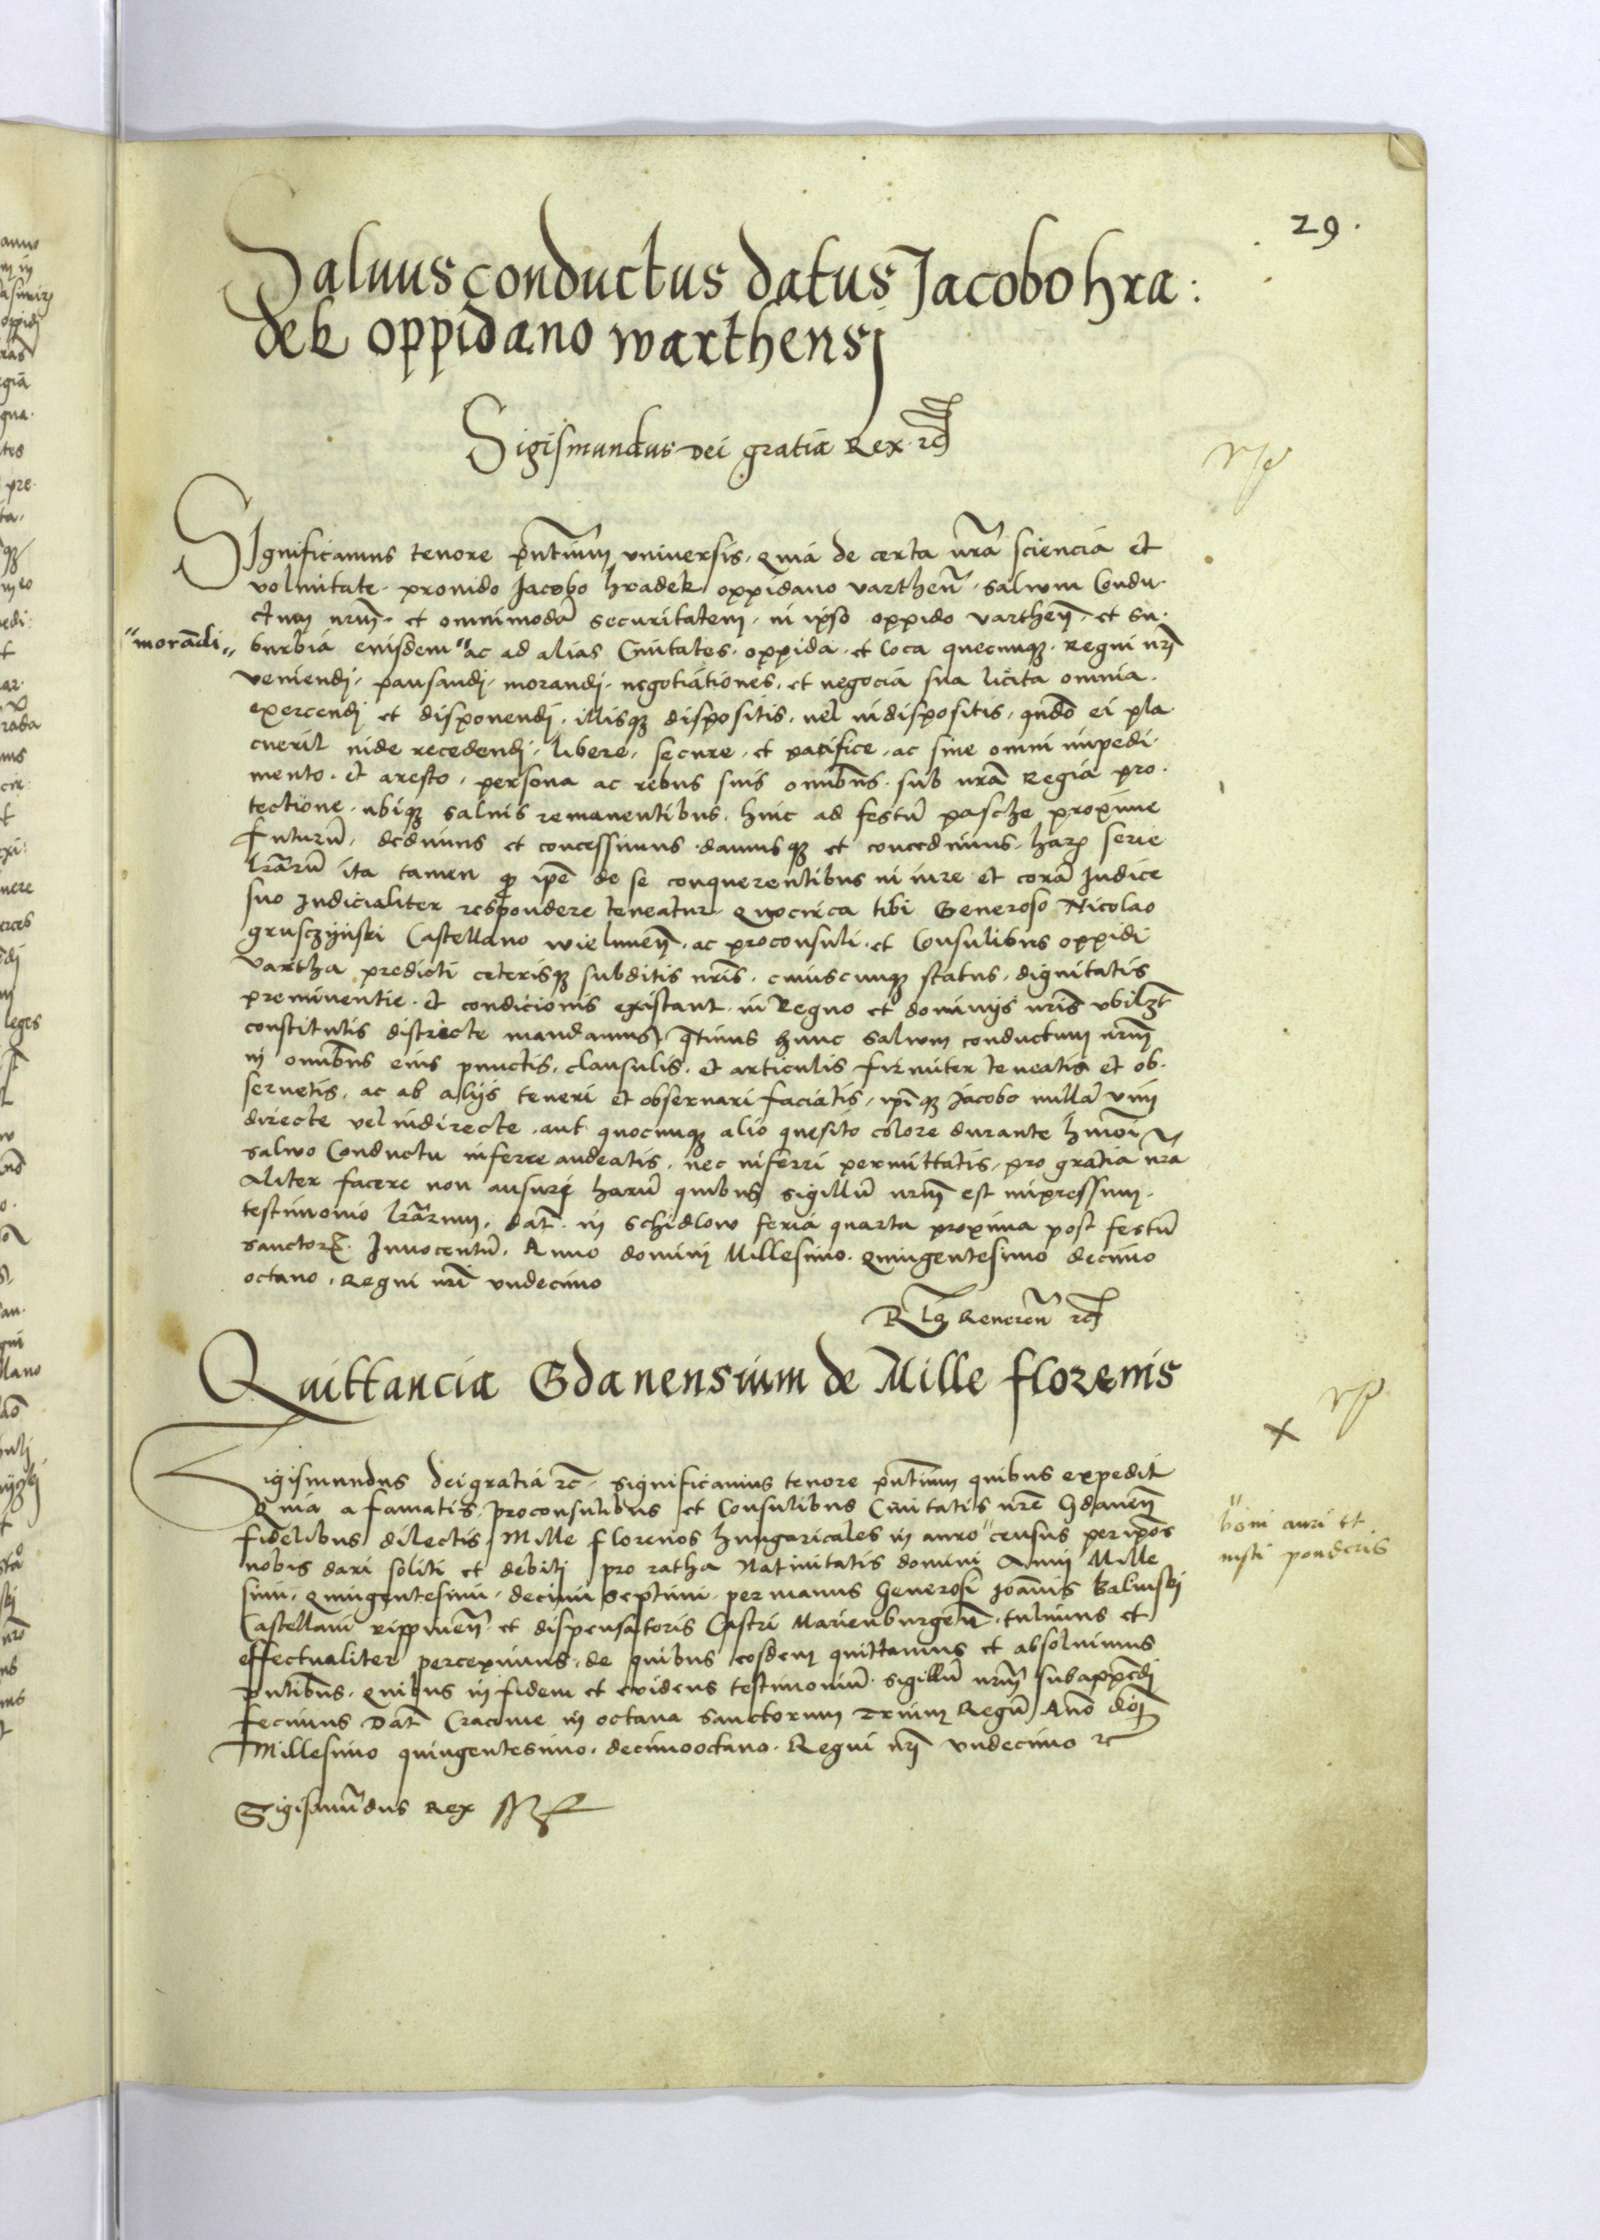 29.
Salvus conductus datus Jacobo hra:
dek oppidano warthensj
Sigismundus Dei gratia Rex rc̃
Significamus tenore pñtium universis. Quia de certa ñra sciencia et
voluntate. provido Jacobo hradek oppidano varthen̄. salvum Condu-
ctum nrm̄. et omnimodā securitatem. in ipso oppido varthen̄. et su-
"morādi" burbia eiusdem "ac ad alias Civitates. oppida. et loca quecunqȝ. Regni nrī
veniendj. pausandj. morandj. negotiationes. et negocia sua licita omnia.
exercendj et disponendj. illisqȝ dispositis. vel indispositis. qn̄do ei pla-
cuerit inde recedendj. libere. secure. et pacifice. ac sine omni impedi-
mento. et aresto. persona ac rebus suis om̄ibus. sub nrā Regia pro-
tectione. ubiqȝ salvis remanentibus. hinc ad festū pasche proxime
futurū. dedimus et concessimus. damusqȝ et concedimus. harꝝ serie
lrārū ita tamen qp ipē de se conquerentibus in iure et corā Judice
suo Judicialiter respondere teneatur. Quocirca tibi Generoso Nicolao
grusczynski Castellano wielunen̄. ac proconsuli. et Consulibus oppidi
vartha predicti ceterisqȝ subditis nrīs. cuiuscunqȝ status. dignitatis
preminentie. et condicionis existant. in Regno et dominijs nrīs ubilȝt
constitutis districte mandamus q̄tinus hunc salvum conductum nrm̄
in om̄ibus eius punctis. clausulis. et articulis firmiter teneatis et ob-
servetis. ac ab alijs teneri et observari faciatis. ipīqȝ Jacobo nullā vim
directe vel indirecte. aut quocunqȝ alio quesito colore durante hm̄oi
salvo Conductu inferre audeatis. nec inferri permittatis. pro gratia nrā
aliter facere non ausuri harū quibus sigillū nrm̄ est impressum.
testimonio lrārum. dat̄. in schidlow feria quarta proxima post festū
sanctorꝝ. Innocentū. Anno domini Millesimo. quingentesimo decimo
octavo. Regni nrī undecimo
Rlō Reveren̄ rc̃
Quittancia Gdanensium de Mille florenis
Sigismundus dei gratia rc̃. significamus tenore pñtium quibus expedit
Quia a famatis. proconsulibus et Consulibus Civitatis nrē Gdanen̄
fidelibus dilectis. Mille florenos hungaricales in auro "census per ipōs
"boni auri et
iusti ponderis
nobis dari soliti et debiti pro ratha Nativitatis domini Anni Mille
simi. quingentesimi. decimi septimi. per manus Generosi Joānis Balinski
Castellani rippinen̄. et dispensatoris Castri Marienburgen̄. tulimus et
effectualiter percepimus. de quibus eosdem quittamus et absolvimus
pñtibus. quibus in fidem et evidens testimoniū. sigillū nrm̄ subappēdj
fecimus Dat̄ Cracovie in octava sanctorum Trium Regū Ano dōj
Millesimo quingentesimo. decimooctavo. Regni nrī undecimo rc
Sigismūdus Rex sst